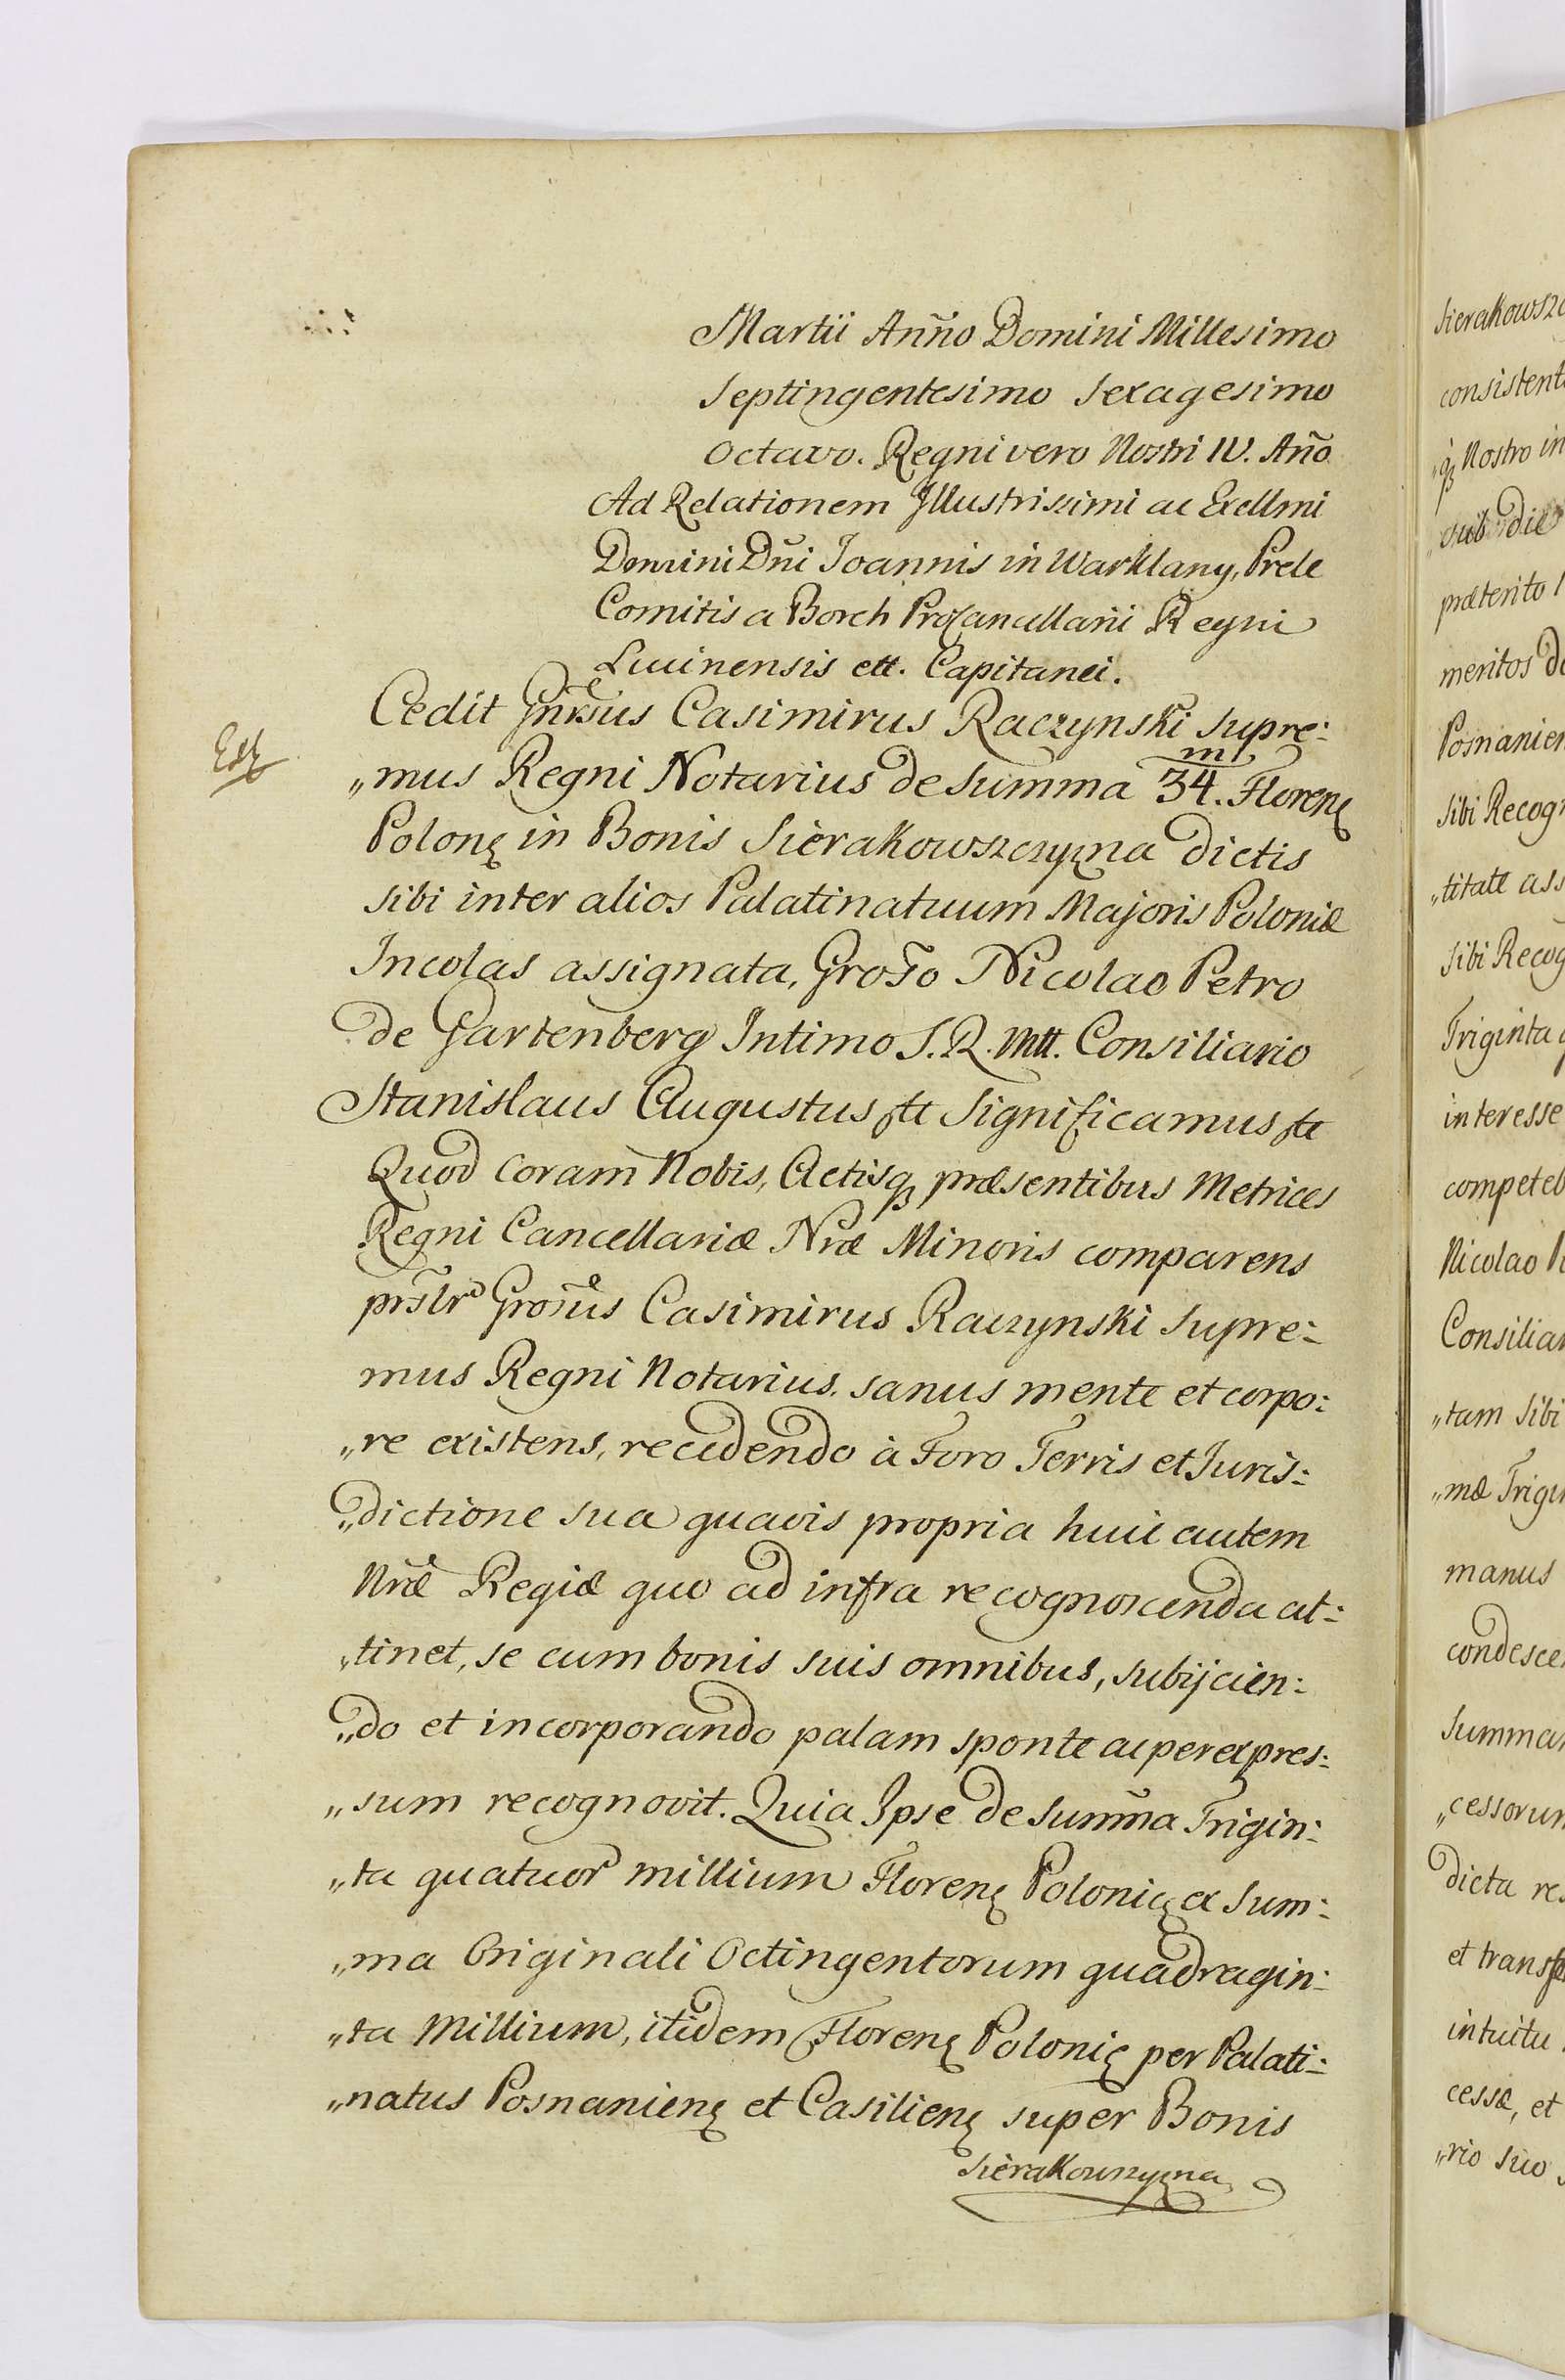 Martii Añno Domini Millesimo
Septingentesimo Sexagesimo
Octavo. Regni vero Nostri IV. Año
Ad Relationem Illustrissimi ac Exellmi
Domini Dñi Joannis in Warklany, Prele
Comitis a Borch Procancellarii Regni
Luinensis ett. Capitanei.
Cedit Casimirus Raczynski Supre:
„mus Regni Notarius de Summa 34.m Floren
Polon in Bonis Sierakowszczyzna dictis
sibi inter alios Palatinatuum Majoris Poloniæ
Incolas assignata, Groso Nicolao Petro
de Gartenberg Intimo S. R. Mtt. Consiliario
Stanislaus Augustus ett Significamus ett
Quod coram Nobis, Actisq præsentibus Metrices
Regni Cancellariæ Nræ Minoris comparens
prslr Grosus Casimirus Raczynski Supre:
mus Regni Notarius. sanus mente et corpo:
„re existens, recedendo à Foro Terris et Juris:
„dictione sua quavis propria huic autem
Nræ Regiæ quo ad infra recognoscenda at:
„tinet, se cum bonis suis omnibus, subijcien:
„do et incorporando palam sponte ac per expres:
„sum recognovit. Quia Ipse de Sum̃a Trigin:
„ta quatuor millium Floren Polonic ex Sum:
„ma Originali Octingentorum quadragin:
„ta Millium, itidem Floren Polonic per Palati:
„natus Posnanien et Casilien super Bonis
Sierakowszyzna
Sierakowszc
consistent
„q Nostro in
præterito
meritos de
Posnanien
Sibi Recogn
„titate ass
Sibi Recog
Triginta q
interesse
competeb
Nicolao
Consiliar
„tam Sibi
„mæ Trigin
manus
condesce
Summa
„cessorum
dicta re
et transf
intuitu
cessæ, et
„rio suo